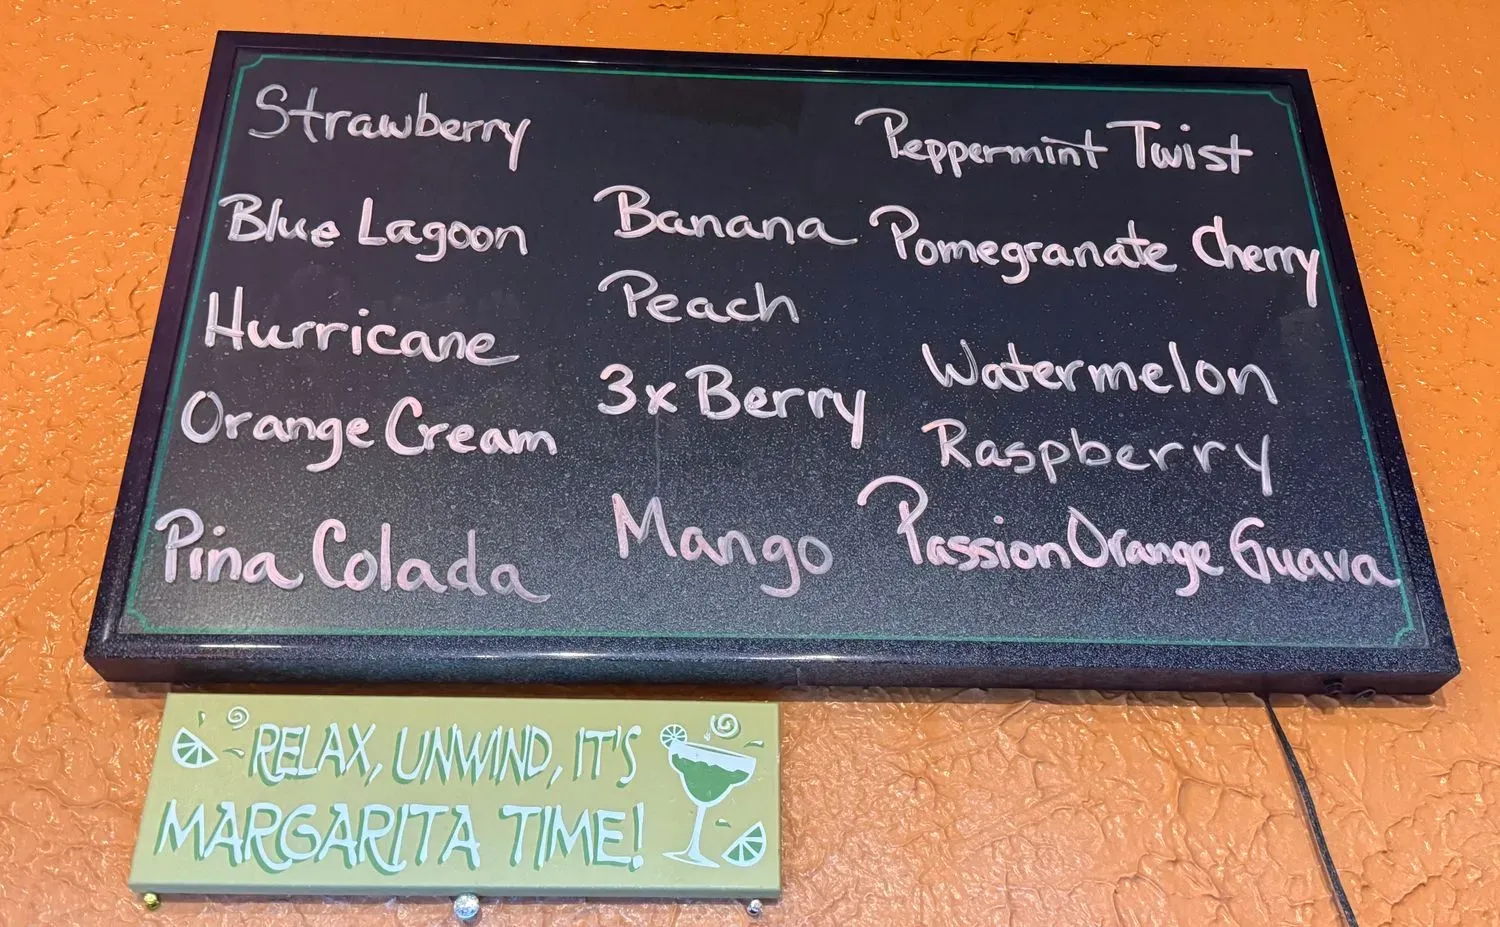 Strawberry
Blue Lagoon
Hurricane
Orange Cream
Pina Colada
Banana
Peach
3x Berry
Mango
Peppermint Twist
Pomegranate Cherry
Watermelon
Raspberry
Passion Orange Guava
RELAX, UNWIND, IT'S
MARGARITA TIME!